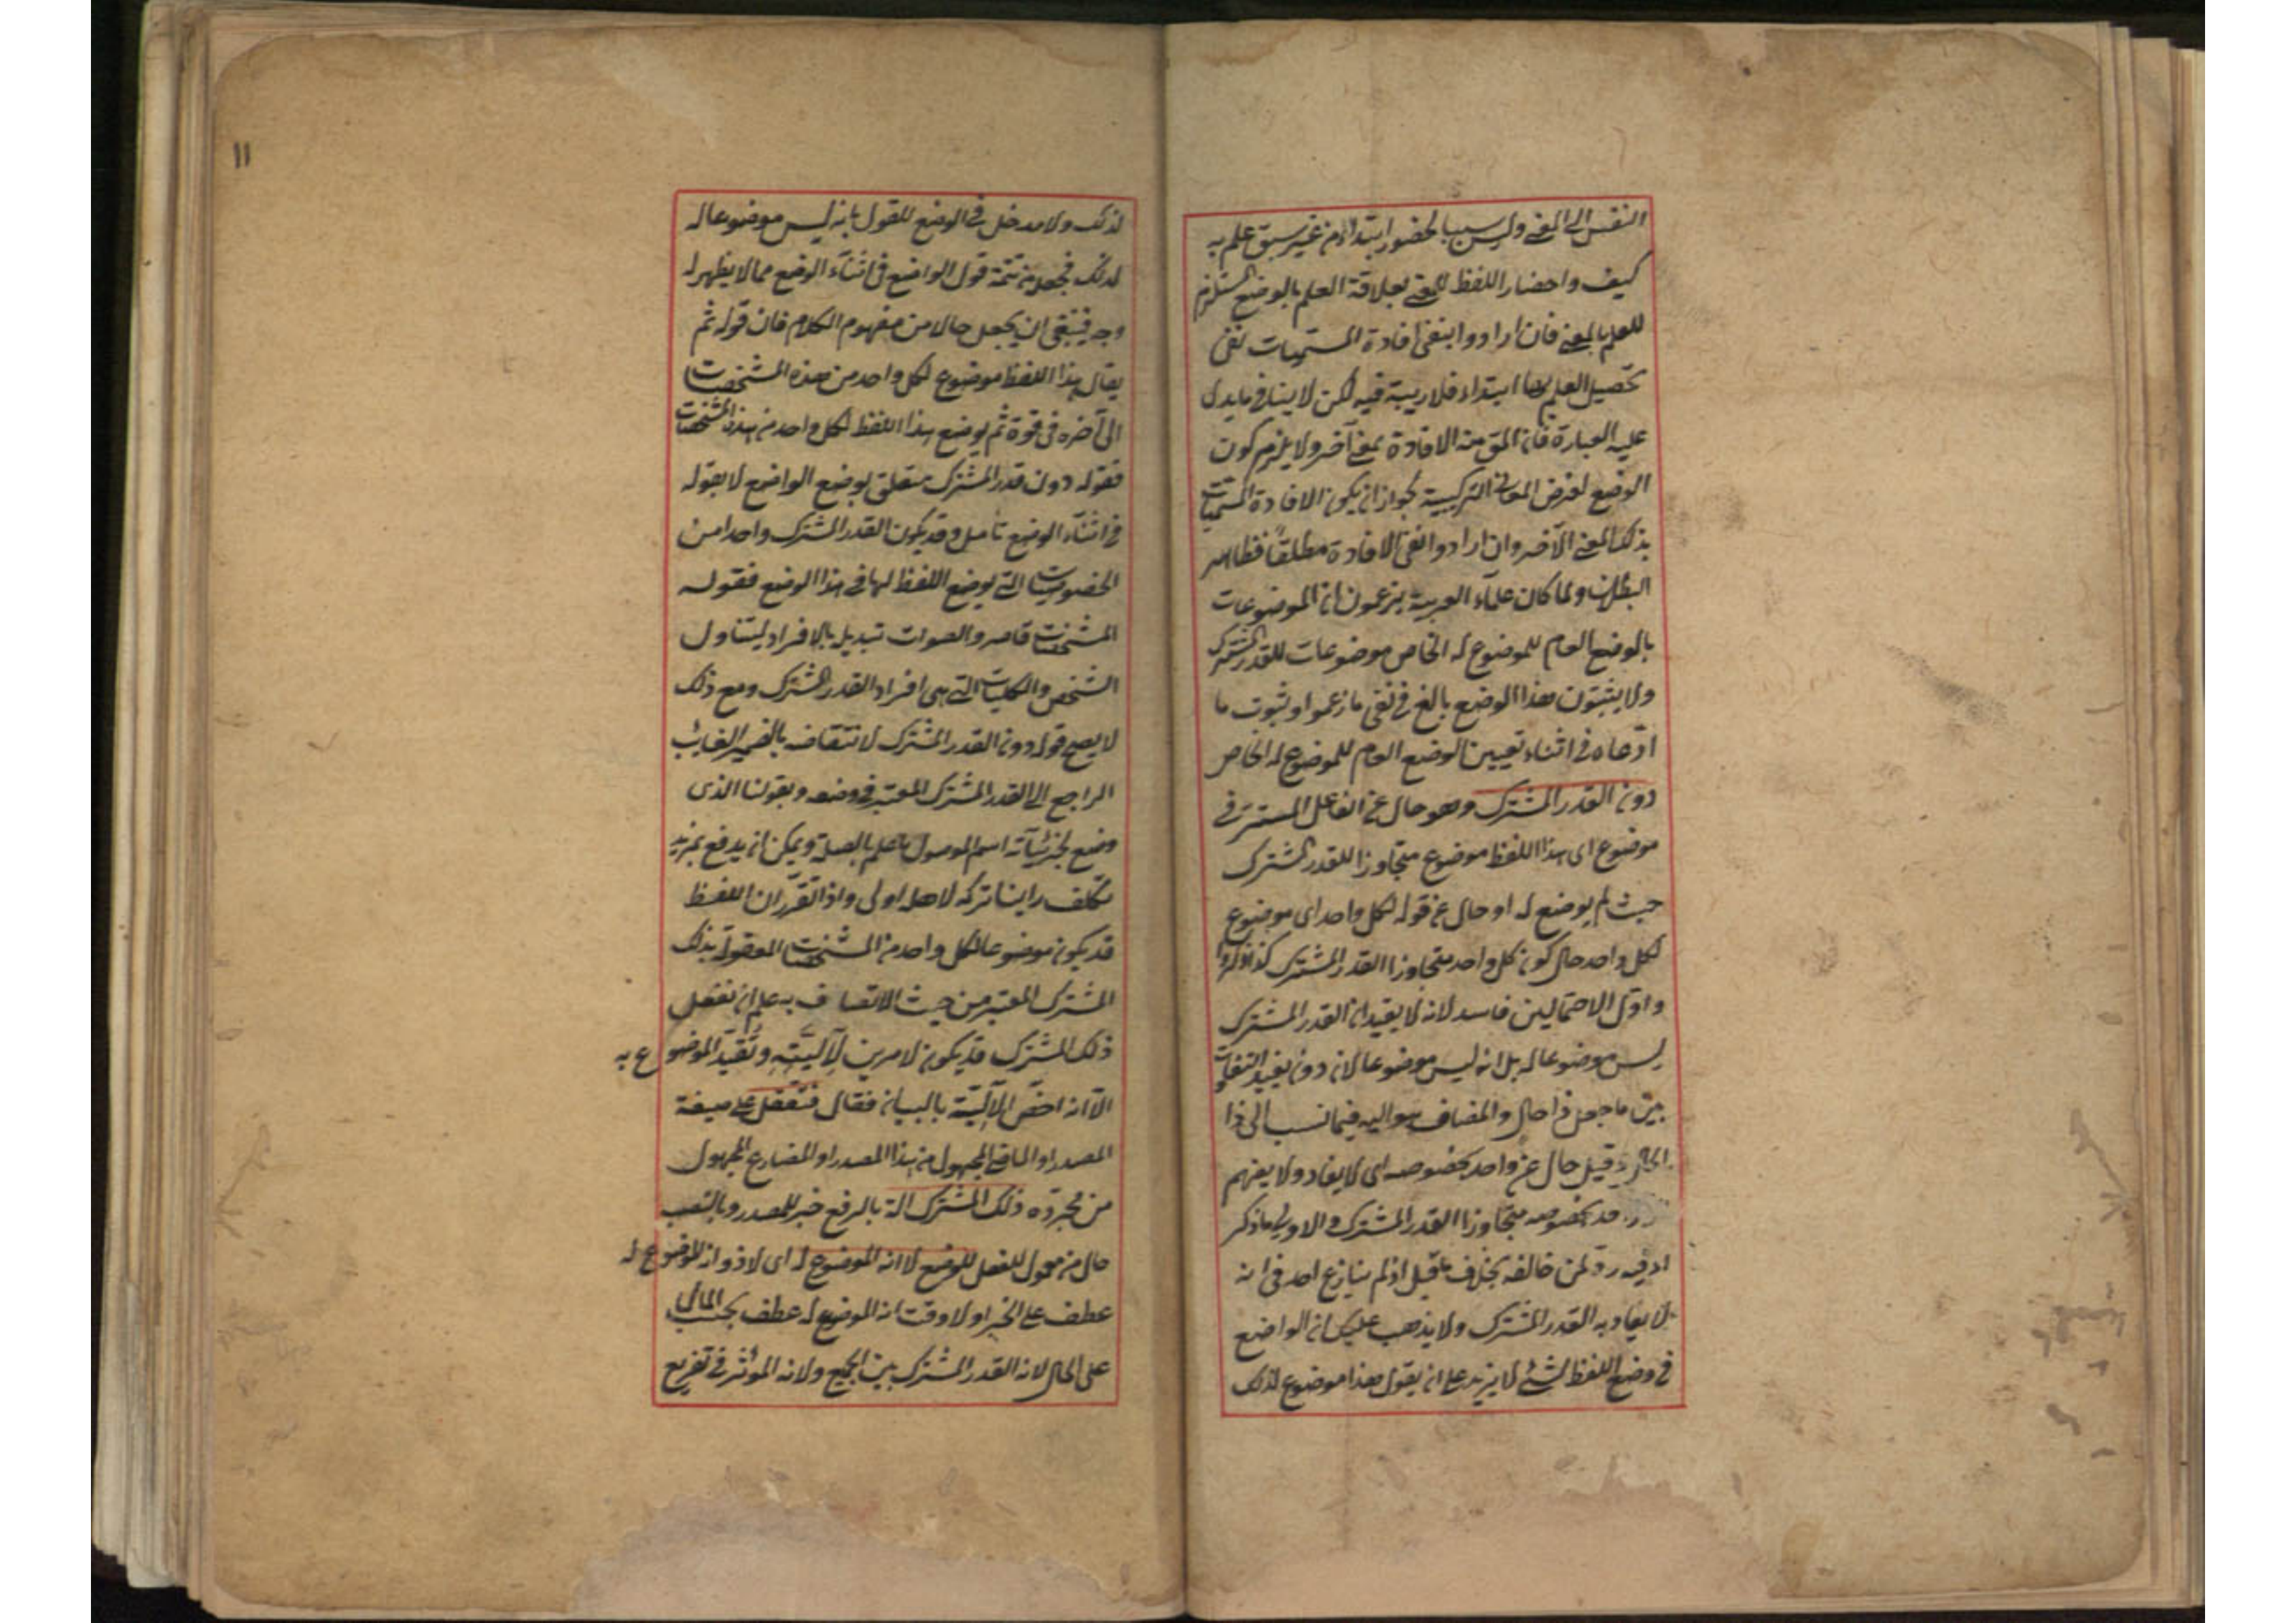 النفس الى المعنى وليس سببا لحضوره ابتداء من غير سبق علم به
كيف واحضار اللفظ للمعنى بعلاقة العلم بالوضع المستلزم
للعلم بالمعنى فان ارادوا بنفى افادة المسميات نفى
تحصيل العلم بها ابتداء فلا ريبة فيه لكن لا ينافى ما يدل
عليه العبارة فان المق من الافادة بمعنى آخر ولا يلزم كون
الوضع لغرض المعانى التركيبية لجواز ان يكون الافادة المسميات
بذلك المعنى الآخر وان ارادوا نفى الافادة مطلقا فظاهر
البطلان ولما كان علماء العربية يزعمون ان الموضوعات
بالوضع العام للموضوع له الخاص موضوعات للقدر المشترك
ولا يثبتون هذا الوضع بالغ فى نفى ما زعموا وثبوت ما
ادعاه فى اثناء تعيين الوضع العام للموضوع له الخاص
دون القدر المشترك وهو حال عن الفاعل المستتر فى
موضوع اى هذا اللفظ موضوع متجاوزا للقدر المشترك
حيث لم يوضع له او حال عن قوله لكل واحد اى موضوع
لكل واحد حال كون كل واحد متجاوزا القدر المشترك كذا ذكروا
واول الاحتمالين فاسد لانه لا يفيد ان القدر المشترك
ليس موضوعا له بل انه ليس موضوعا لان دون يفيد التفاوت
بين ما جعل ذا حال والمضاف هو اليه فيما نسب الى ذا
الحال وقيل حال عن واحد بخصوصه اى لا يفاد ولا يفهم
بخصوصه متجاوزا القدر المشترك والاولى ما ذكر
اذ فيه رد لمن خالفه بخلاف ما قيل اذ لم ينازع احد فى انه
لا يفاد به القدر المشترك ولا يذهب عليك ان الواضع
فى وضع اللفظ لشئ لا يزيد على ان يقول هذا موضوع لذلك
١١
لذلك ولا مدخل فى الوضع للقول بانه ليس موضوعا له
لذلك فجعله من تتمة قول الواضع فى اثناء الوضع مما لا يظهر له
وجه فينبغى ان يجعل حالا من مفهوم الكلام فان قوله ثم
يقال هذا اللفظ موضوع لكل واحد من هذه المشخصات
الى آخره فى قوة ثم يوضع هذا اللفظ لكل واحد من هذه المشخصات
فقوله دون قدر المشترك متعلق بوضع الواضع لا بقوله
فى اثناء الوضع تأمل وقد يكون القدر المشترك واحدا من
الخصوصيات التى يوضع اللفظ لها فى هذا الوضع فقوله
المشخصات قاصر والصواب تبديل بالافراد ليتناول
الشخص والكليات التى هى افراد القدر المشترك ومع ذلك
لا يصح قوله دون القدر المشترك لانتقاضه بالضمير الغائب
الراجع الى القدر المشترك المعتبر فى وضعه وبقولنا الذى
وضع لجزئياته اسم الموصول ما علم بالصلة ويمكن ان يدفع بمزيد
تكلف راينا تركه لاهله اولى واذا تقرر ان اللفظ
قد يكون موضوعا لكل واحد من المشخصات المعقولة بذلك
المشترك المعتبر من حيث الاتصاف به علم ان تعقل
ذلك المشترك قد يكون لامرين لآليته وتقيد الموضوع به
الا انه اختص الآلية بالبيان فقال فتعقل على صيغة
المصدر او الماضى المجهول من هذا المصدر او المضارع المجهول
من مجرده ذلك المشترك آلة بالرفع خبر للمصدر وبالنصب
حال من معمول للفعل للوضع لا انه الموضوع له اى لا ذو انه الموضوع له
عطف على الخبر او لا وقت انه الموضوع له عطف بحسب المآل
على الحال لانه القدر المشترك بين الجميع ولانه المؤثر فى تفريع